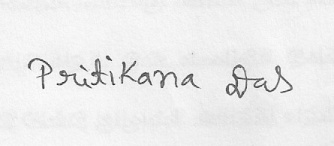 Pritikana Das